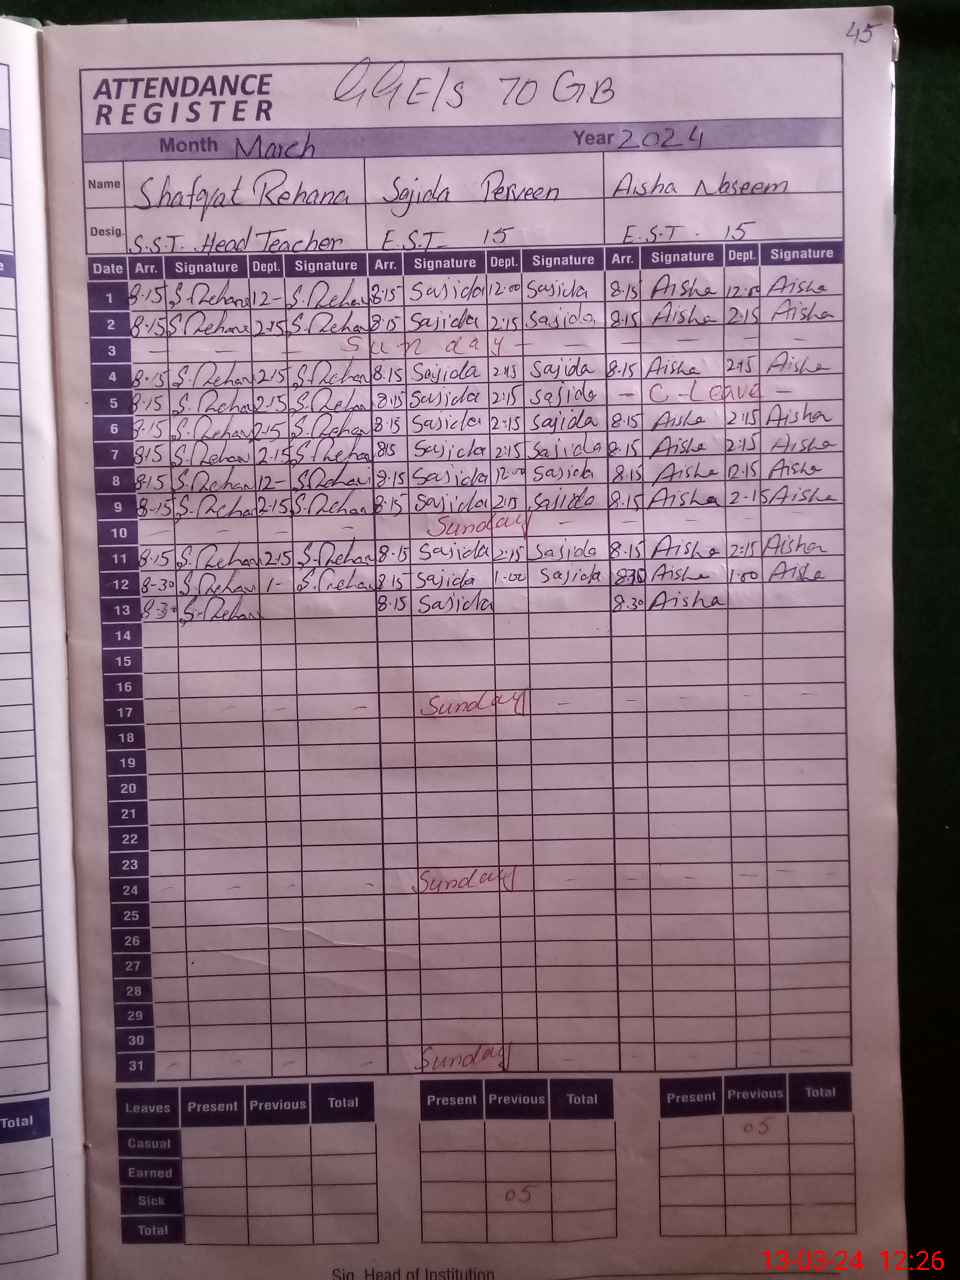 45
ATTENDANCE REGISTER GGE/S 70 GB
Month March Year 2024
Name Shafqat Rehana Sajida Perveen Aisha Naseem
Desig. S.S.T. Head Teacher E.S.T- 15 E.S.T. 15
Date Arr. Signature Dept. Signature Arr. Signature Dept. Signature Arr. Signature Dept. Signature
1 8.15 S.Rehana 12- S.Rehana 8.15 Sajida 12.00 Sajida 8.15 Aisha 12.00 Aisha
2 8.15 S.Rehana 2.15 S.Rehana 8.15 Sajida 2.15 Sajida 8.15 Aisha 2.15 Aisha
3 - - - Sunday - - - - -
4 8.15 S.Rehan 2.15 S.Rehan 8.15 Sajida 2.15 Sajida 8.15 Aisha 2.15 Aisha
5 8.15 S.Rehan 2.15 S.Rehan 8.15 Sajida 2.15 Sajida - C-Leave -
6 8.15 S.Rehan 2.15 S.Rehan 8.15 Sajida 2.15 Sajida 8.15 Aisha 2.15 Aisha
7 8.15 S.Rehan 2.15 S.Rehan 8.15 Sajida 2.15 Sajida 8.15 Aisha 2.15 Aisha
8 8.15 S.Rehan 12- S.Rehan 8.15 Sajida 12.00 Sajida 8.15 Aisha 12.15 Aisha
9 8-15 S.Rehan 2.15 S.Rehan 8.15 Sajida 2.15 Sajida 8.15 Aisha 2-15 Aisha
10 - - - Sunday - - - - -
11 8.15 S.Rehan 2.15 S.Rehan 8.15 Sajida 2.15 Sajida 8.15 Aisha 2.15 Aisha
12 8-30 S.Rehan 1- S.Rehan 8.15 Sajida 1.00 Sajida 8.30 Aisha 1.00 Aisha
13 8-30 S.Rehan 8.15 Sajida 8.30 Aisha
14
15
16
17 - - - Sunday - - - - -
18
19
20
21
22
23
24 - - - Sunday - - - - -
25
26
27
28
29
30
31 - - - Sunday - - - - -
Leaves Present Previous Total Present Previous Total Present Previous Total
Casual 05
Earned
Sick 05
Total
Total
Sig. Head of Institution
13-03-24 12:26